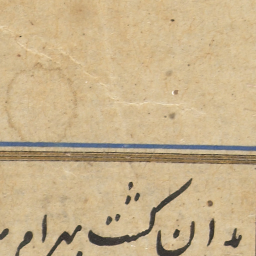 بدان گشت بهرام